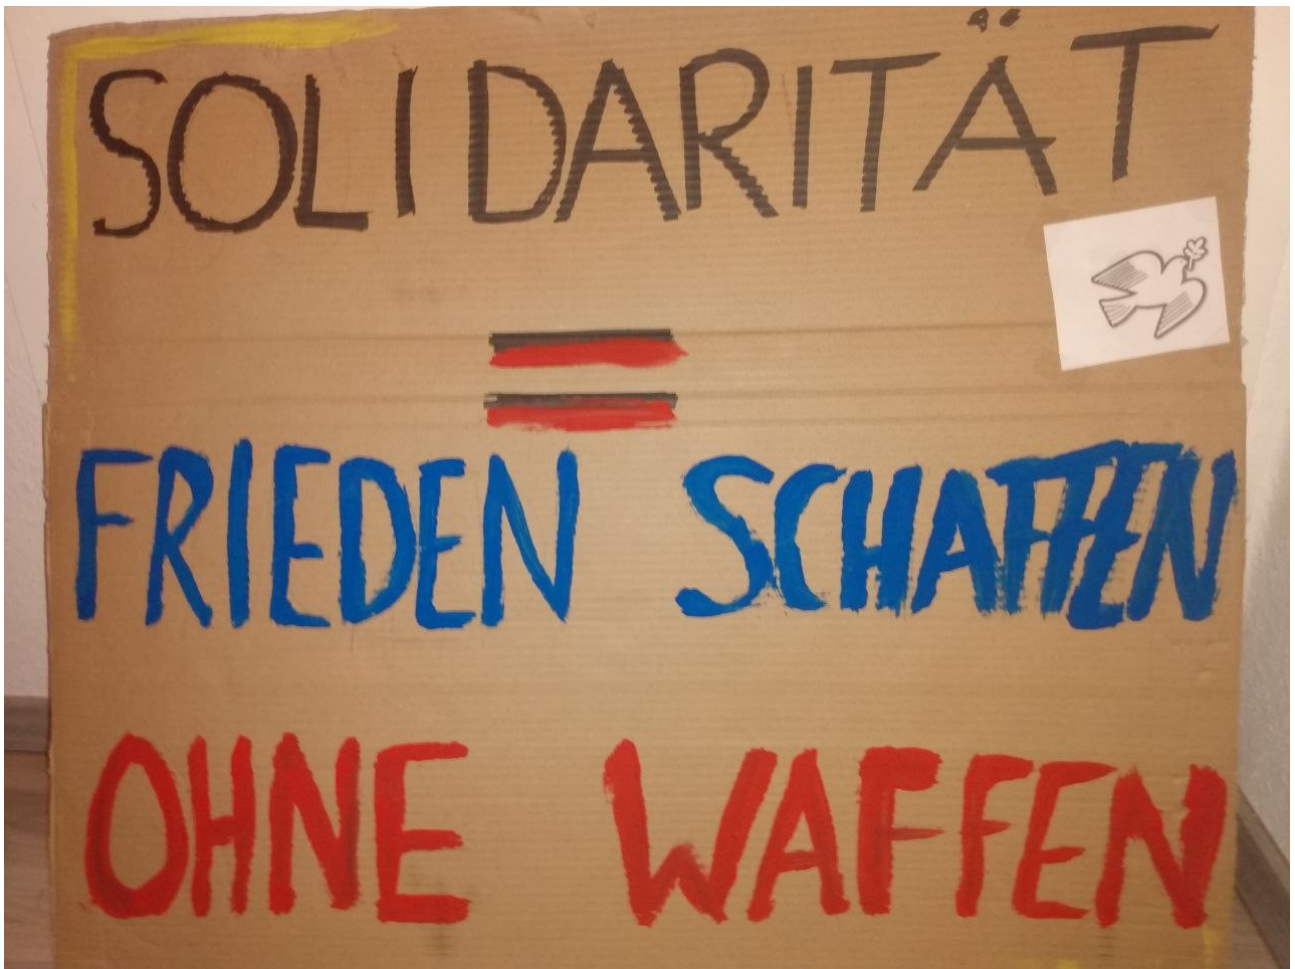 SOLIDARITÄT
=
FRIEDEN SCHAFFEN
OHNE WAFFEN